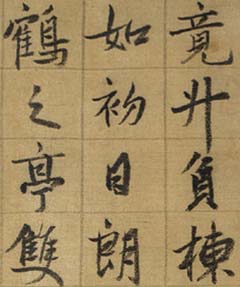 竟廾負棟
如初日朗
鶴之亭雙